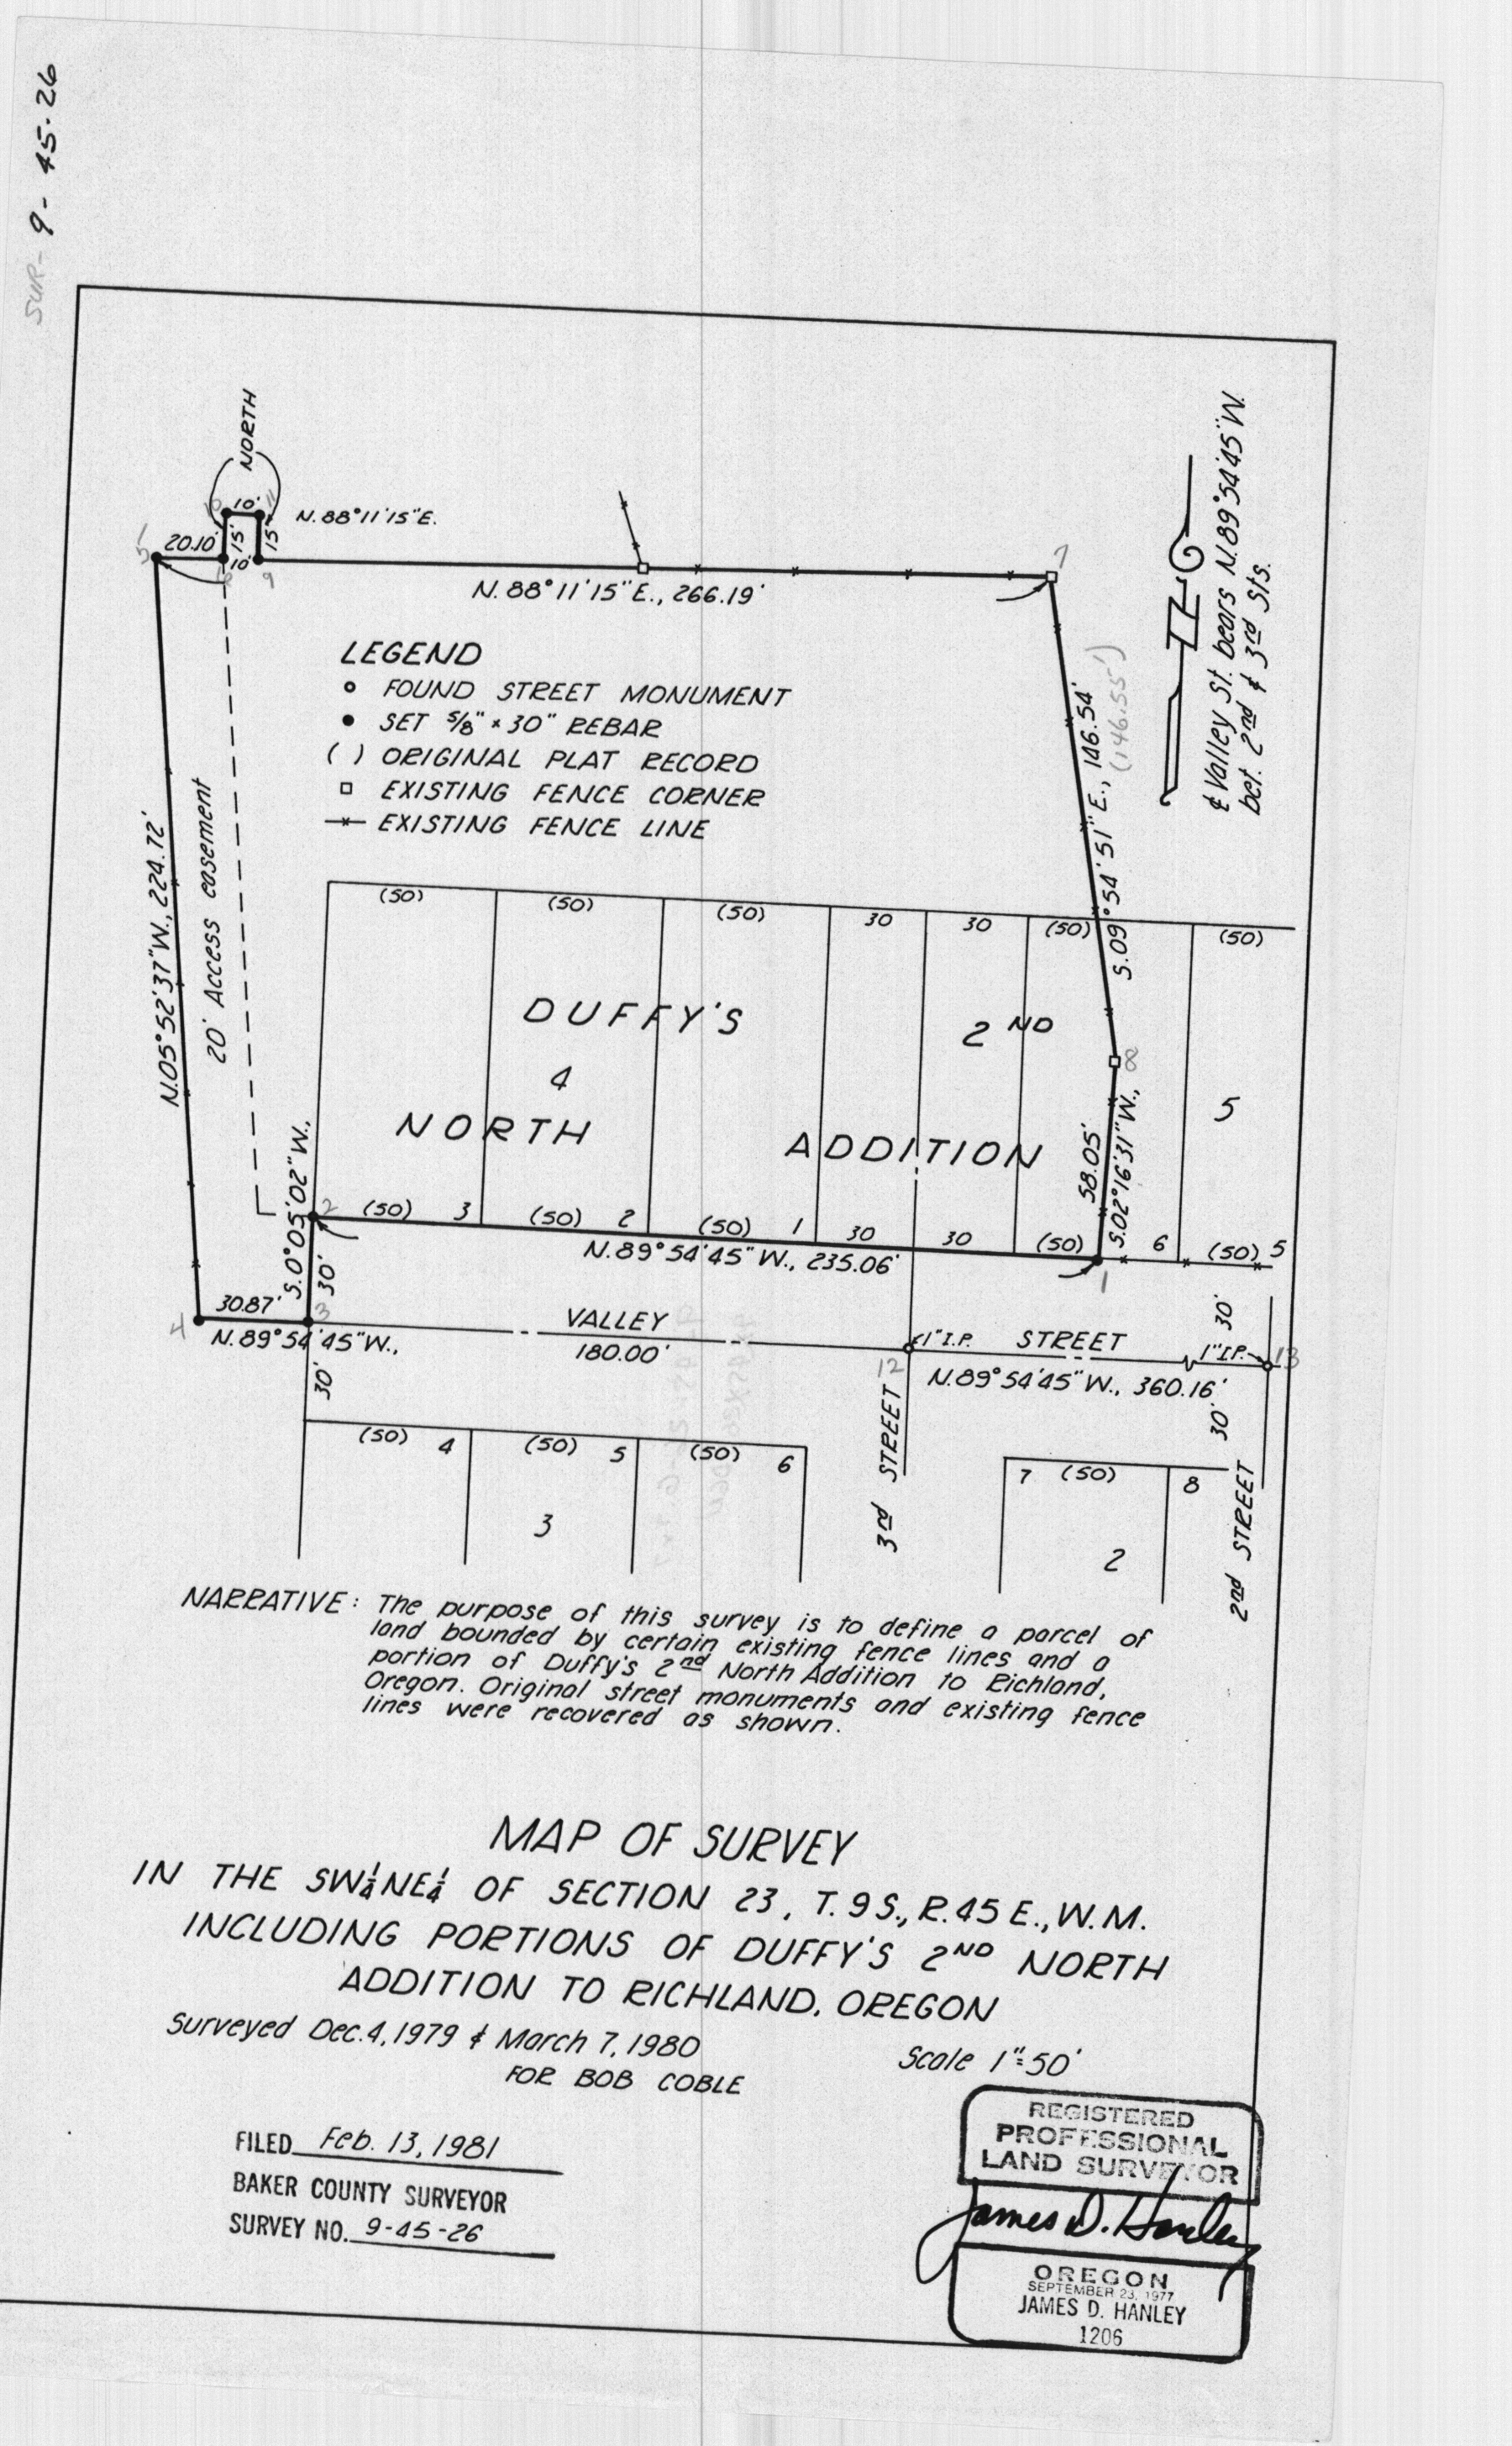 SUR- 9- 45-26
NORTH
10'
20.10'
15'
15'
10'
N. 88°11'15"E.
5
10
11
9
7
N. 88°11'15"E., 266.19'
LEGEND
FOUND STREET MONUMENT
SET 5/8" x 30" REBAR
( ) ORIGINAL PLAT RECORD
EXISTING FENCE CORNER
EXISTING FENCE LINE
N.05°52'37"W., 224.72'
20' Access easement
S.09°54'51"E., 146.54'
(146.55')
℄ Valley St. bears N.89°54'45"W.
bet. 2nd & 3rd Sts.
(50) (50) (50) 30 30 (50) (50)
DUFFY'S 2ND
4
5
NORTH ADDITION
8
58.05'
S.02°16'31"W.,
S.0°05'02"W.,
30'
2
(50) 3 (50) 2 (50) 1 30 30 (50) 6 (50) 5
N.89°54'45"W., 235.06'
1
30.87'
4
3
N.89°54'45"W.,
VALLEY STREET
180.00'
1" I.P.
1" I.P.
12
13
N.89°54'45"W., 360.16'
30'
30'
30'
3rd STREET
2nd STREET
(50) 4 (50) 5 (50) 6
3
7 (50) 8
2
NARRATIVE: The purpose of this survey is to define a parcel of
land bounded by certain existing fence lines and a
portion of Duffy's 2nd North Addition to Richland,
Oregon. Original street monuments and existing fence
lines were recovered as shown.
MAP OF SURVEY
IN THE SW¼NE¼ OF SECTION 23, T. 9 S., R. 45 E., W. M.
INCLUDING PORTIONS OF DUFFY'S 2ND NORTH
ADDITION TO RICHLAND, OREGON
Surveyed Dec. 4, 1979 & March 7, 1980
FOR BOB COBLE
Scale 1"=50'
FILED Feb. 13, 1981
BAKER COUNTY SURVEYOR
SURVEY NO. 9-45-26
REGISTERED
PROFESSIONAL
LAND SURVEYOR
James D. Hanley
OREGON
SEPTEMBER 23, 1977
JAMES D. HANLEY
1206